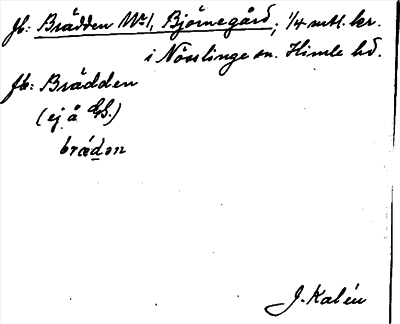 Jb: Brädden No 1, Björnegård; 1/4 mtl. kr.
i Nösslinge sn. Himle hd.
Jb: Brädden
(ej å GS.)
brádən
J. Kalén